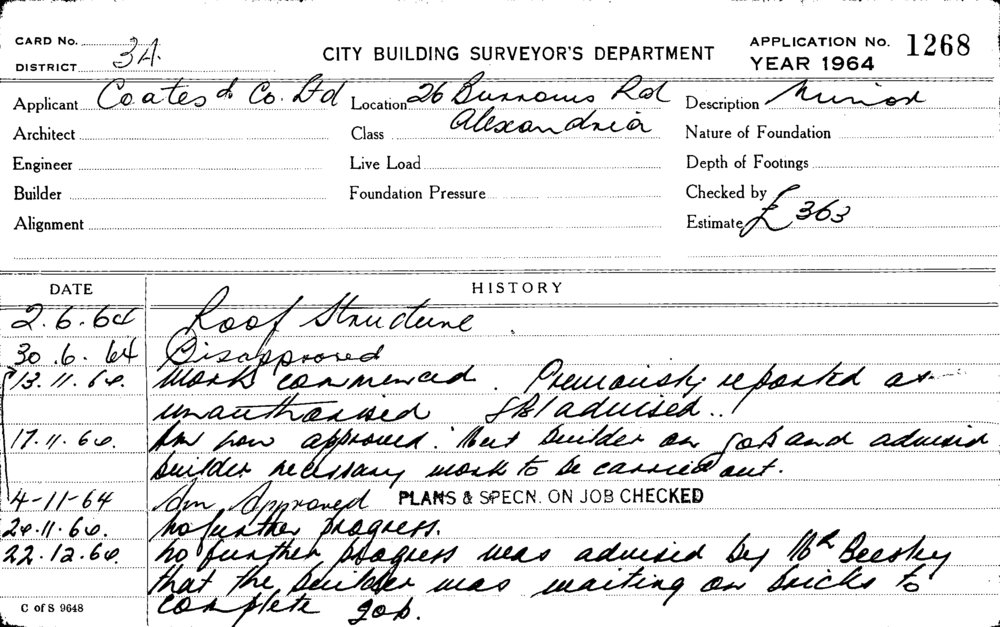 CARD No.
DISTRICT 3A.
CITY BUILDING SURVEYOR'S DEPARTMENT
APPLICATION No. 1268
YEAR 1964
Applicant Coates & Co. Ltd Location 26 Burrows Rd Description Minor
Alexandria
Architect Class Nature of Foundation
Engineer Live Load Depth of Footings
Builder Foundation Pressure Checked by
Alignment Estimate £ 363
DATE HISTORY
2.6.64 Roof Structure.
30.6.64 Disapproved
13.11.64. Work commenced. Previously reported as
unauthorised advised..
17.11.64. now approved. Met builder on job and advised
builder necessary work to be carried out.
4-11-64 Approved PLANS & SPECN. ON JOB CHECKED
No further progress.
22.12.64. No further progress was advised by Mr
that the builder was waiting on bricks to
complete job.
C of S 9648